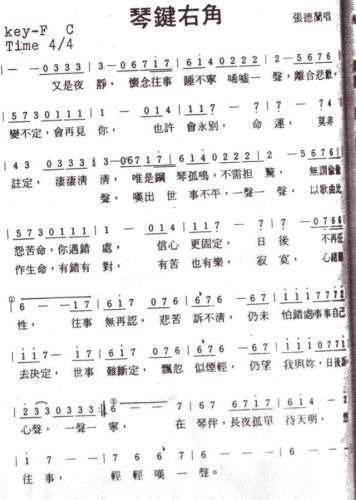 琴鍵右角
key-F C
Time 4/4
張德蘭唱
| — — 0 3 3 3 | 3 — 0 6 7 1 7 | 6 1 4 0 2 2 2 | 2 — 5 6 7 6 |
又是夜 靜, 懷念往事 睡不寧 唏噓一 聲, 離合悲歡,
| 5 7 3 0 1 1 1 | 1 — 0 1 4 | 1 1 7 — 1 7 | 7 4 —
變不定, 會再見 你, 也許 會永別, 命 運, 莫非
| 4 3 0 3 3 3 | 3 — 0 6 7 1 7 | 6 1 4 0 2 2 2 | 2 — 5 6 7 6 |
註定, 淒淒清 清, 唯是鋼 琴孤鳴, 不需担 驚, 無謂
聲, 嘆出 世 事不平, 一聲一 聲, 以歌曲
| 5 7 3 0 1 1 1 | 1 — 0 1 4 | 1 1 7 — 1 | 7 — 0 7 6 6
怨苦命, 你遇錯 處, 信心 更固定, 日 後 不再
作生命, 有錯有 對, 有苦 也有樂, 寂 寞, 心緒
6 — — 1 7 | 6 1 7 0 7 6 | 6 7 6 — 1 7 | 1 1 1 7 7 7
性, 往事 無再認, 悲苦 訴不清, 仍未 怕錯處事事自己
| 1 1 7 — 1 7 | 6 1 7 0 7 6 | 6 7 6 — 1 7 | 1 1 1 7
去決定, 世事 難斷定, 飄忽 似煙輕, 仍望 我與妳, 日後
| 2 3 3 0 3 3 3 :| 6 — — — | — — 0 7 6 | 6 7 1 7 6 1 7 |
心聲, 一聲一 寧, 在 琴伴, 長夜孤單 待天明,
| 1 7 — — | 6 7 6 7 | 6 — — — ||
往 事, 輕 輕 嘆 一 聲。